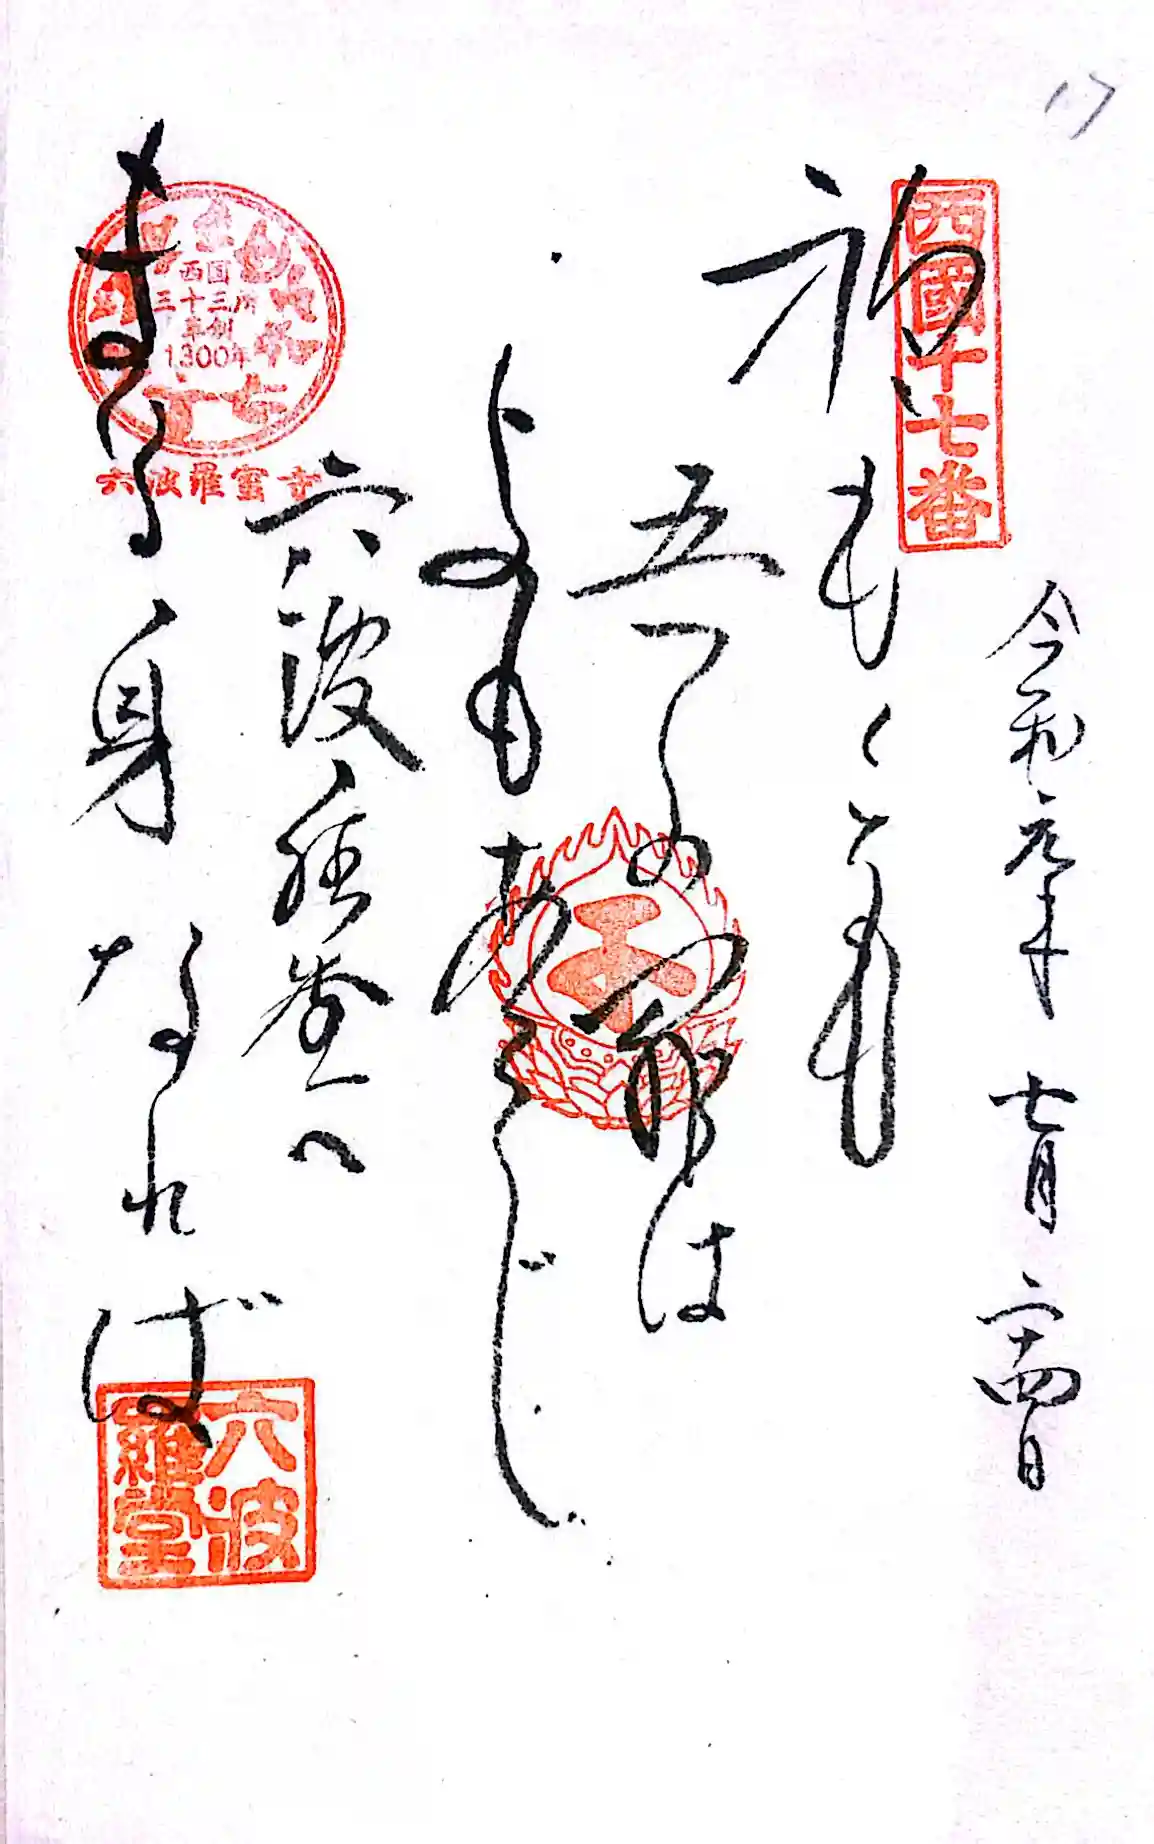 17
西國十七番
令和元年 七月 二十四日
重くとも
五つの罪は
よもあらじ
六波羅堂へ
まゐる身なれば
西国
三十三所
草創
1300年
六波羅蜜寺
六波
羅堂